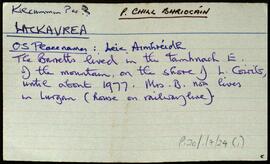 Kilcummin Par
P. CHILL BHRIOCÁIN
LACKAVREA
OS Placenames: Leic Aimhréidh
The Barretts lived in the tamhnach E.
of the mountain, on the shore of L. Corrib,
until about 1977. Mrs. B. now lives
in Lurgan (House on railway line)
P.20/17/24 (1)